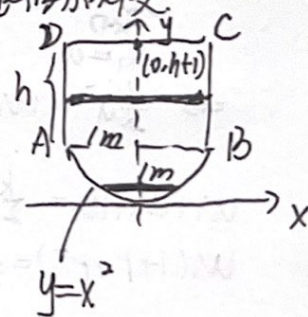 D y C
(0,h+1)
h
A 1m B
1m
x
y=x²